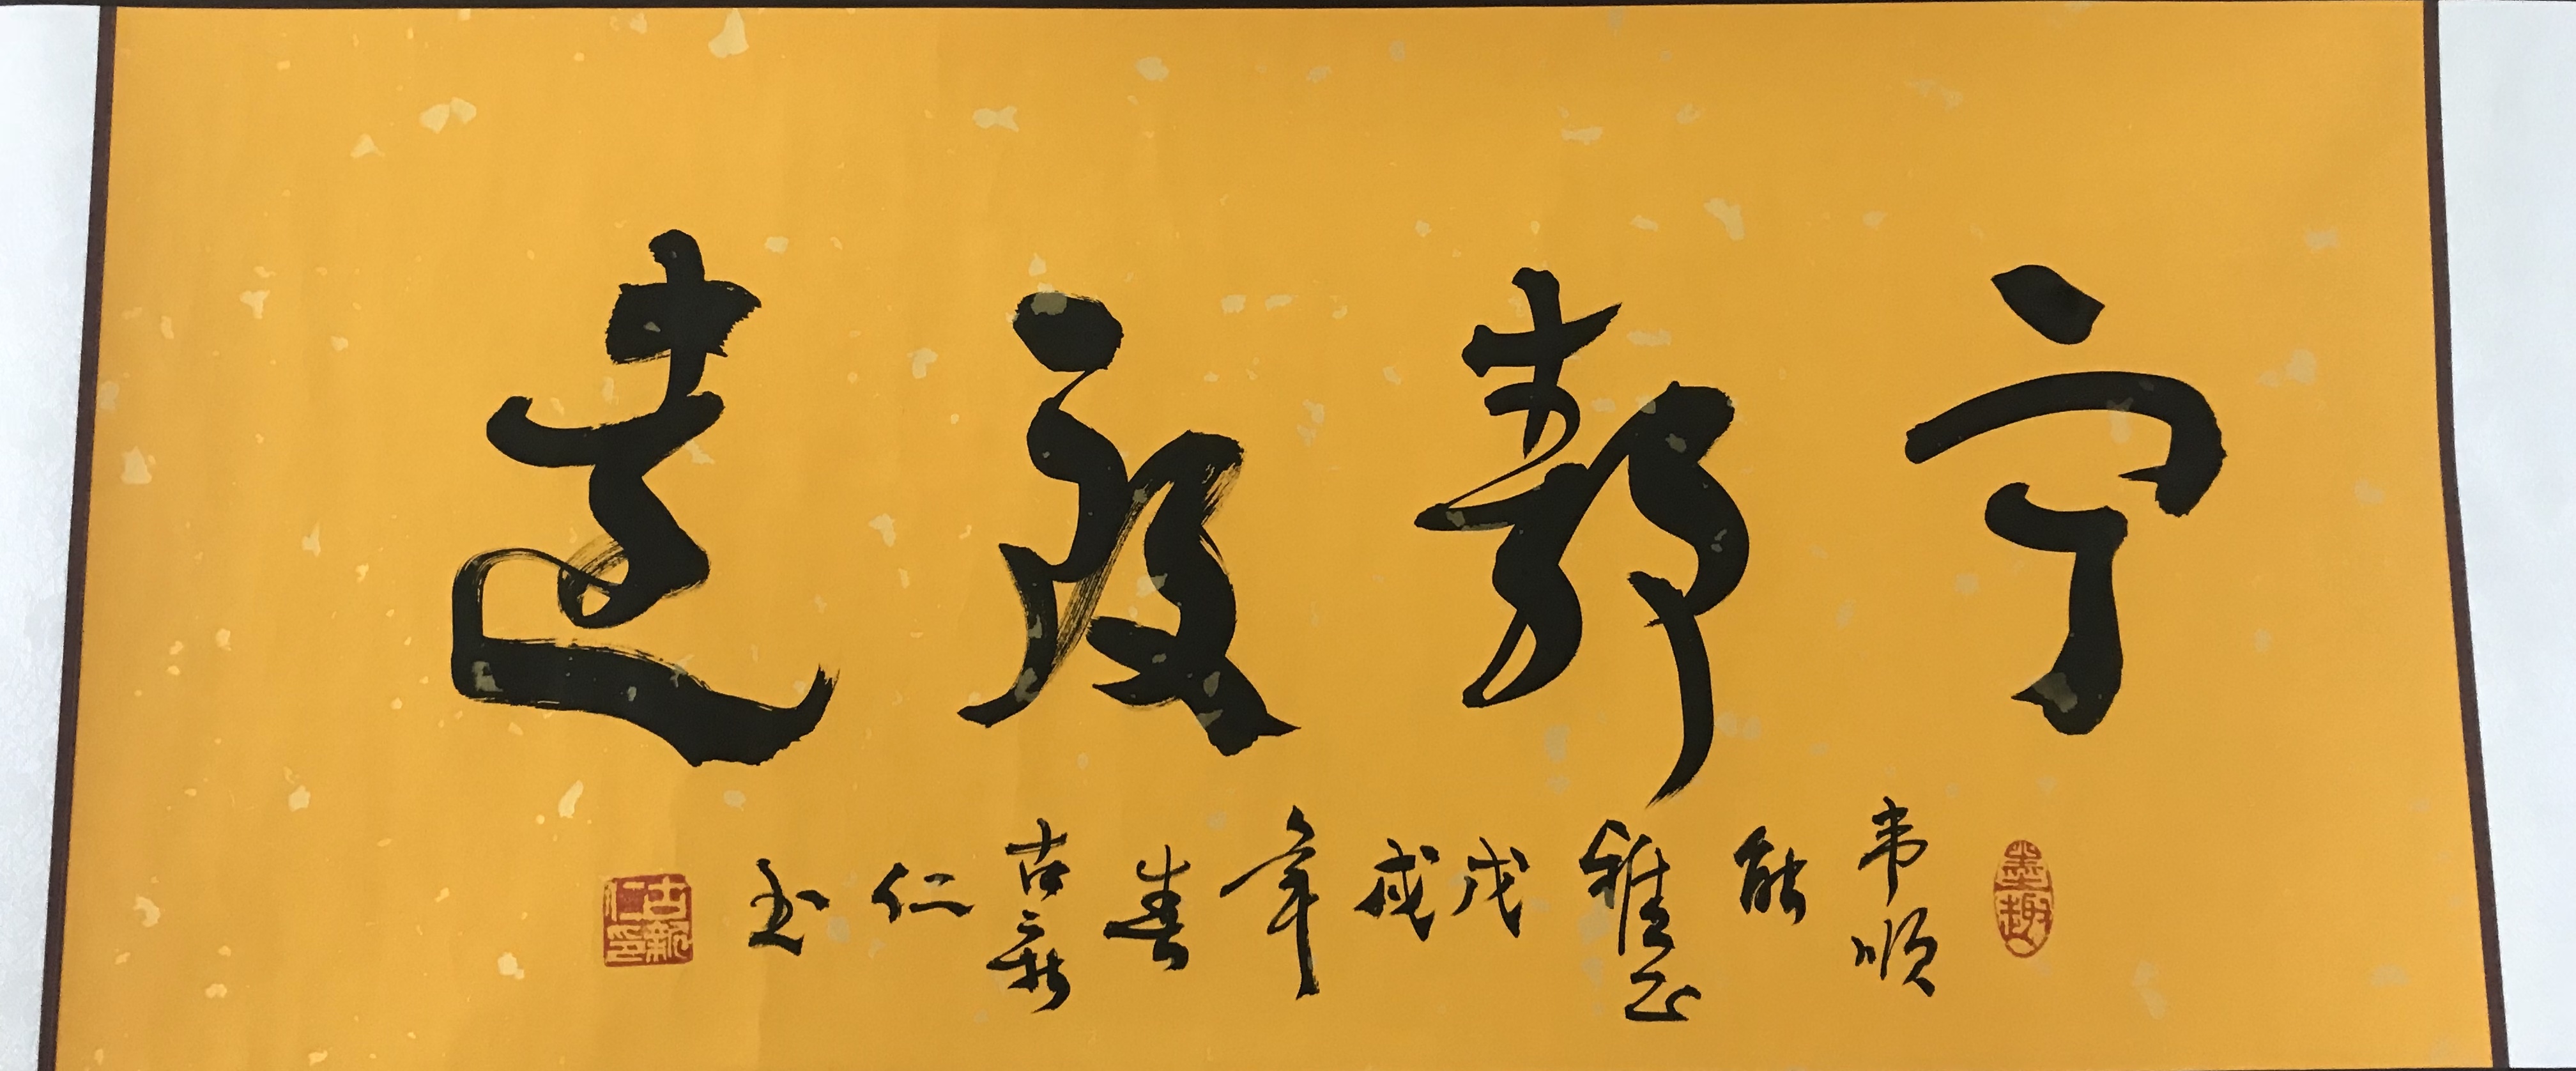 宁静致远
韦顺能雅正戊戌年春古新仁书
墨趣
古新仁印